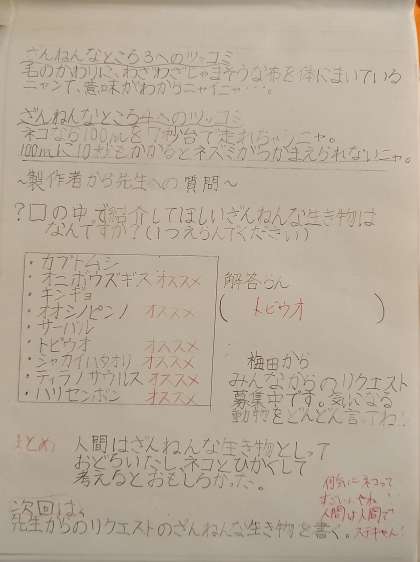 ざんねんなところ3へのツッコミ
毛のかわりに、わざわざじゃまそうな布を体にまいている
ニャンて、意味がわからニャイニャ…。
ざんねんなところ4へのツッコミ
ネコなら100mを7秒台で走れちゃうニャ。
100mに10秒もかかるとネズミがつかまえられないニャ。
~製作者から先生への質問~
?□の中で紹介してほしいざんねんな生き物は
なんですか?(1つえらんでください)
・カブトムシ
・オニボウズギス オススメ
・キンギョ
・オオシノピンノ オススメ
・サーバル
・トビウオ オススメ
・シャカイハタオリ オススメ
・ティラノサウルス オススメ
・ハリセンボン オススメ
解答らん
(トビウオ)
梅田から
みんなからのリクエスト
募集中です。気になる
動物をどんどん言ってね!
まとめ 人間はざんねんな生き物としって
おどろいたし、ネコとひかくして
考えるとおもしろかった。
何気にネコって
すごいしやね
人間は人間で
ステキやん!
次回は、
先生からのリクエストのざんねんな生き物を書く。